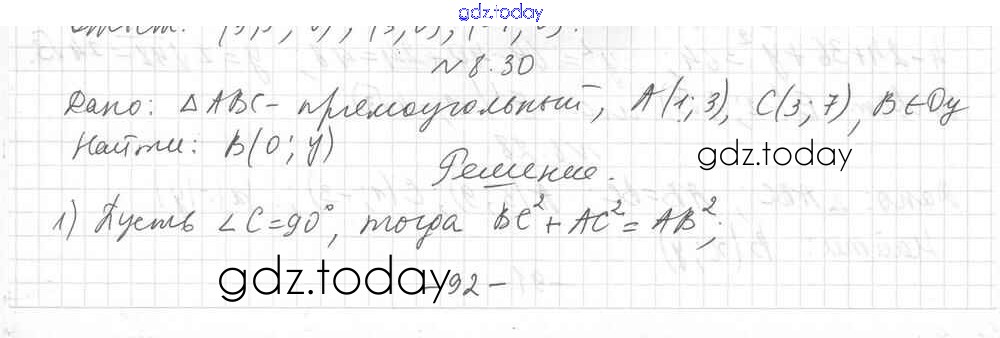 gdz.today
№ 8.30
Дано: △ ABC - прямоугольный, A(1; 3), C(3; 7), B ∈ Oy
Найти: B(0; y)
gdz.today
Решение.
1) Пусть ∠C = 90°, тогда BC² + AC² = AB²;
gdz.today
- 92 -